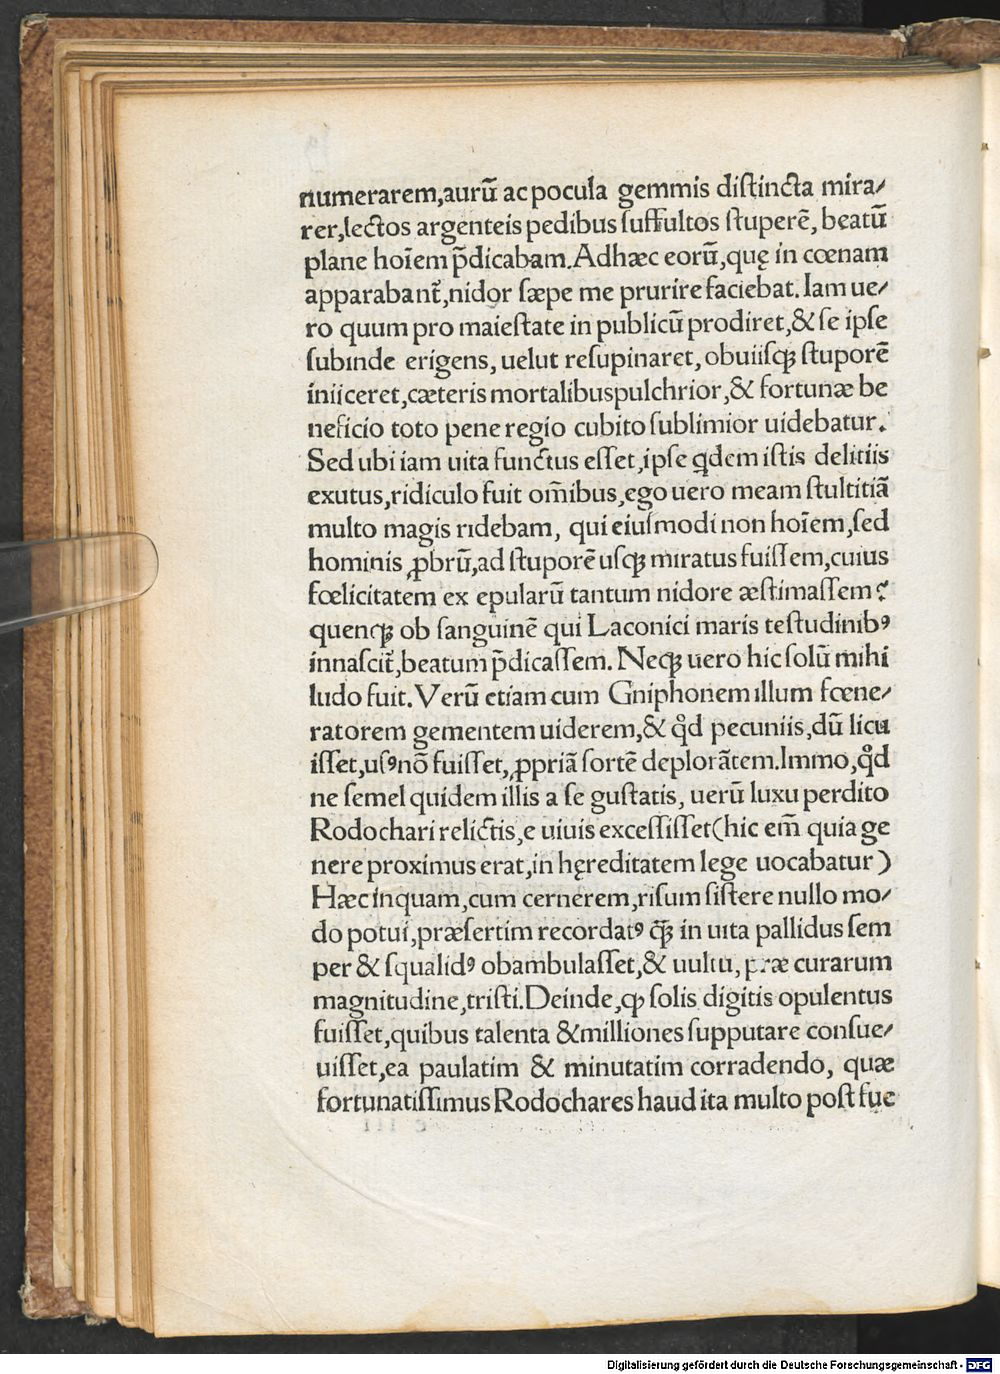 numerarem,aurū ac pocula gemmis distincta mira/
rer,lectos argenteis pedibus suffultos stuperē, beatū
plane hoīem p̄dicabam.Adhæc eorū,quę in cœnam
apparabant̄,nidor sæpe me prurire faciebat.Iam ue/
ro quum pro maiestate in publicū prodiret,& se ipse
subinde erigens, uelut resupinaret, obuiisqꝫ stuporē
iniiceret,cæteris mortalibuspulchrior,& fortunæ be
neficio toto pene regio cubito sublimior uidebatur.
Sed ubi iam uita functus esset,ipse qdem istis delitiis
exutus,ridiculo fuit om̄ibus,ego uero meam stultitiā
multo magis ridebam, qui eiusmodi non hoīem,sed
hominis ꝓbrū,ad stuporē usqꝫ miratus fuissem,cuius
fœlicitatem ex epularū tantum nidore æstimassem?
quenqꝫ ob sanguinē qui Laconici maris testudinibꝰ
innascit̄,beatum p̄dicassem. Neqꝫ uero hic solū mihi
ludo fuit. Verū etiam cum Gniphonem illum fœne/
ratorem gementem uiderem,& qͦd pecuniis,dū licu
isset,usꝰnō fuisset,ꝓpriā sortē deplorātem.Immo,qͦd
ne semel quidem illis a se gustatis, uerū luxu perdito
Rodochari relictis,e uiuis excessisset(hic em̄ quia ge
nere proximus erat,in hęreditatem lege uocabatur)
Hæc inquam,cum cernerem,risum sistere nullo mo/
do potui,præsertim recordatꝰ qꝫ̄ in uita pallidus sem
per & squalidꝰ obambulasset,& uultu, præ curarum
magnitudine,tristi.Deinde,ꝙ solis digitis opulentus
fuisset,quibus talenta &milliones supputare consue/
uisset,ea paulatim & minutatim corradendo, quæ
fortunatissimus Rodochares haud ita multo post fue
Digitalisierung gefördert durch die Deutsche Forschungsgemeinschaft - DFG